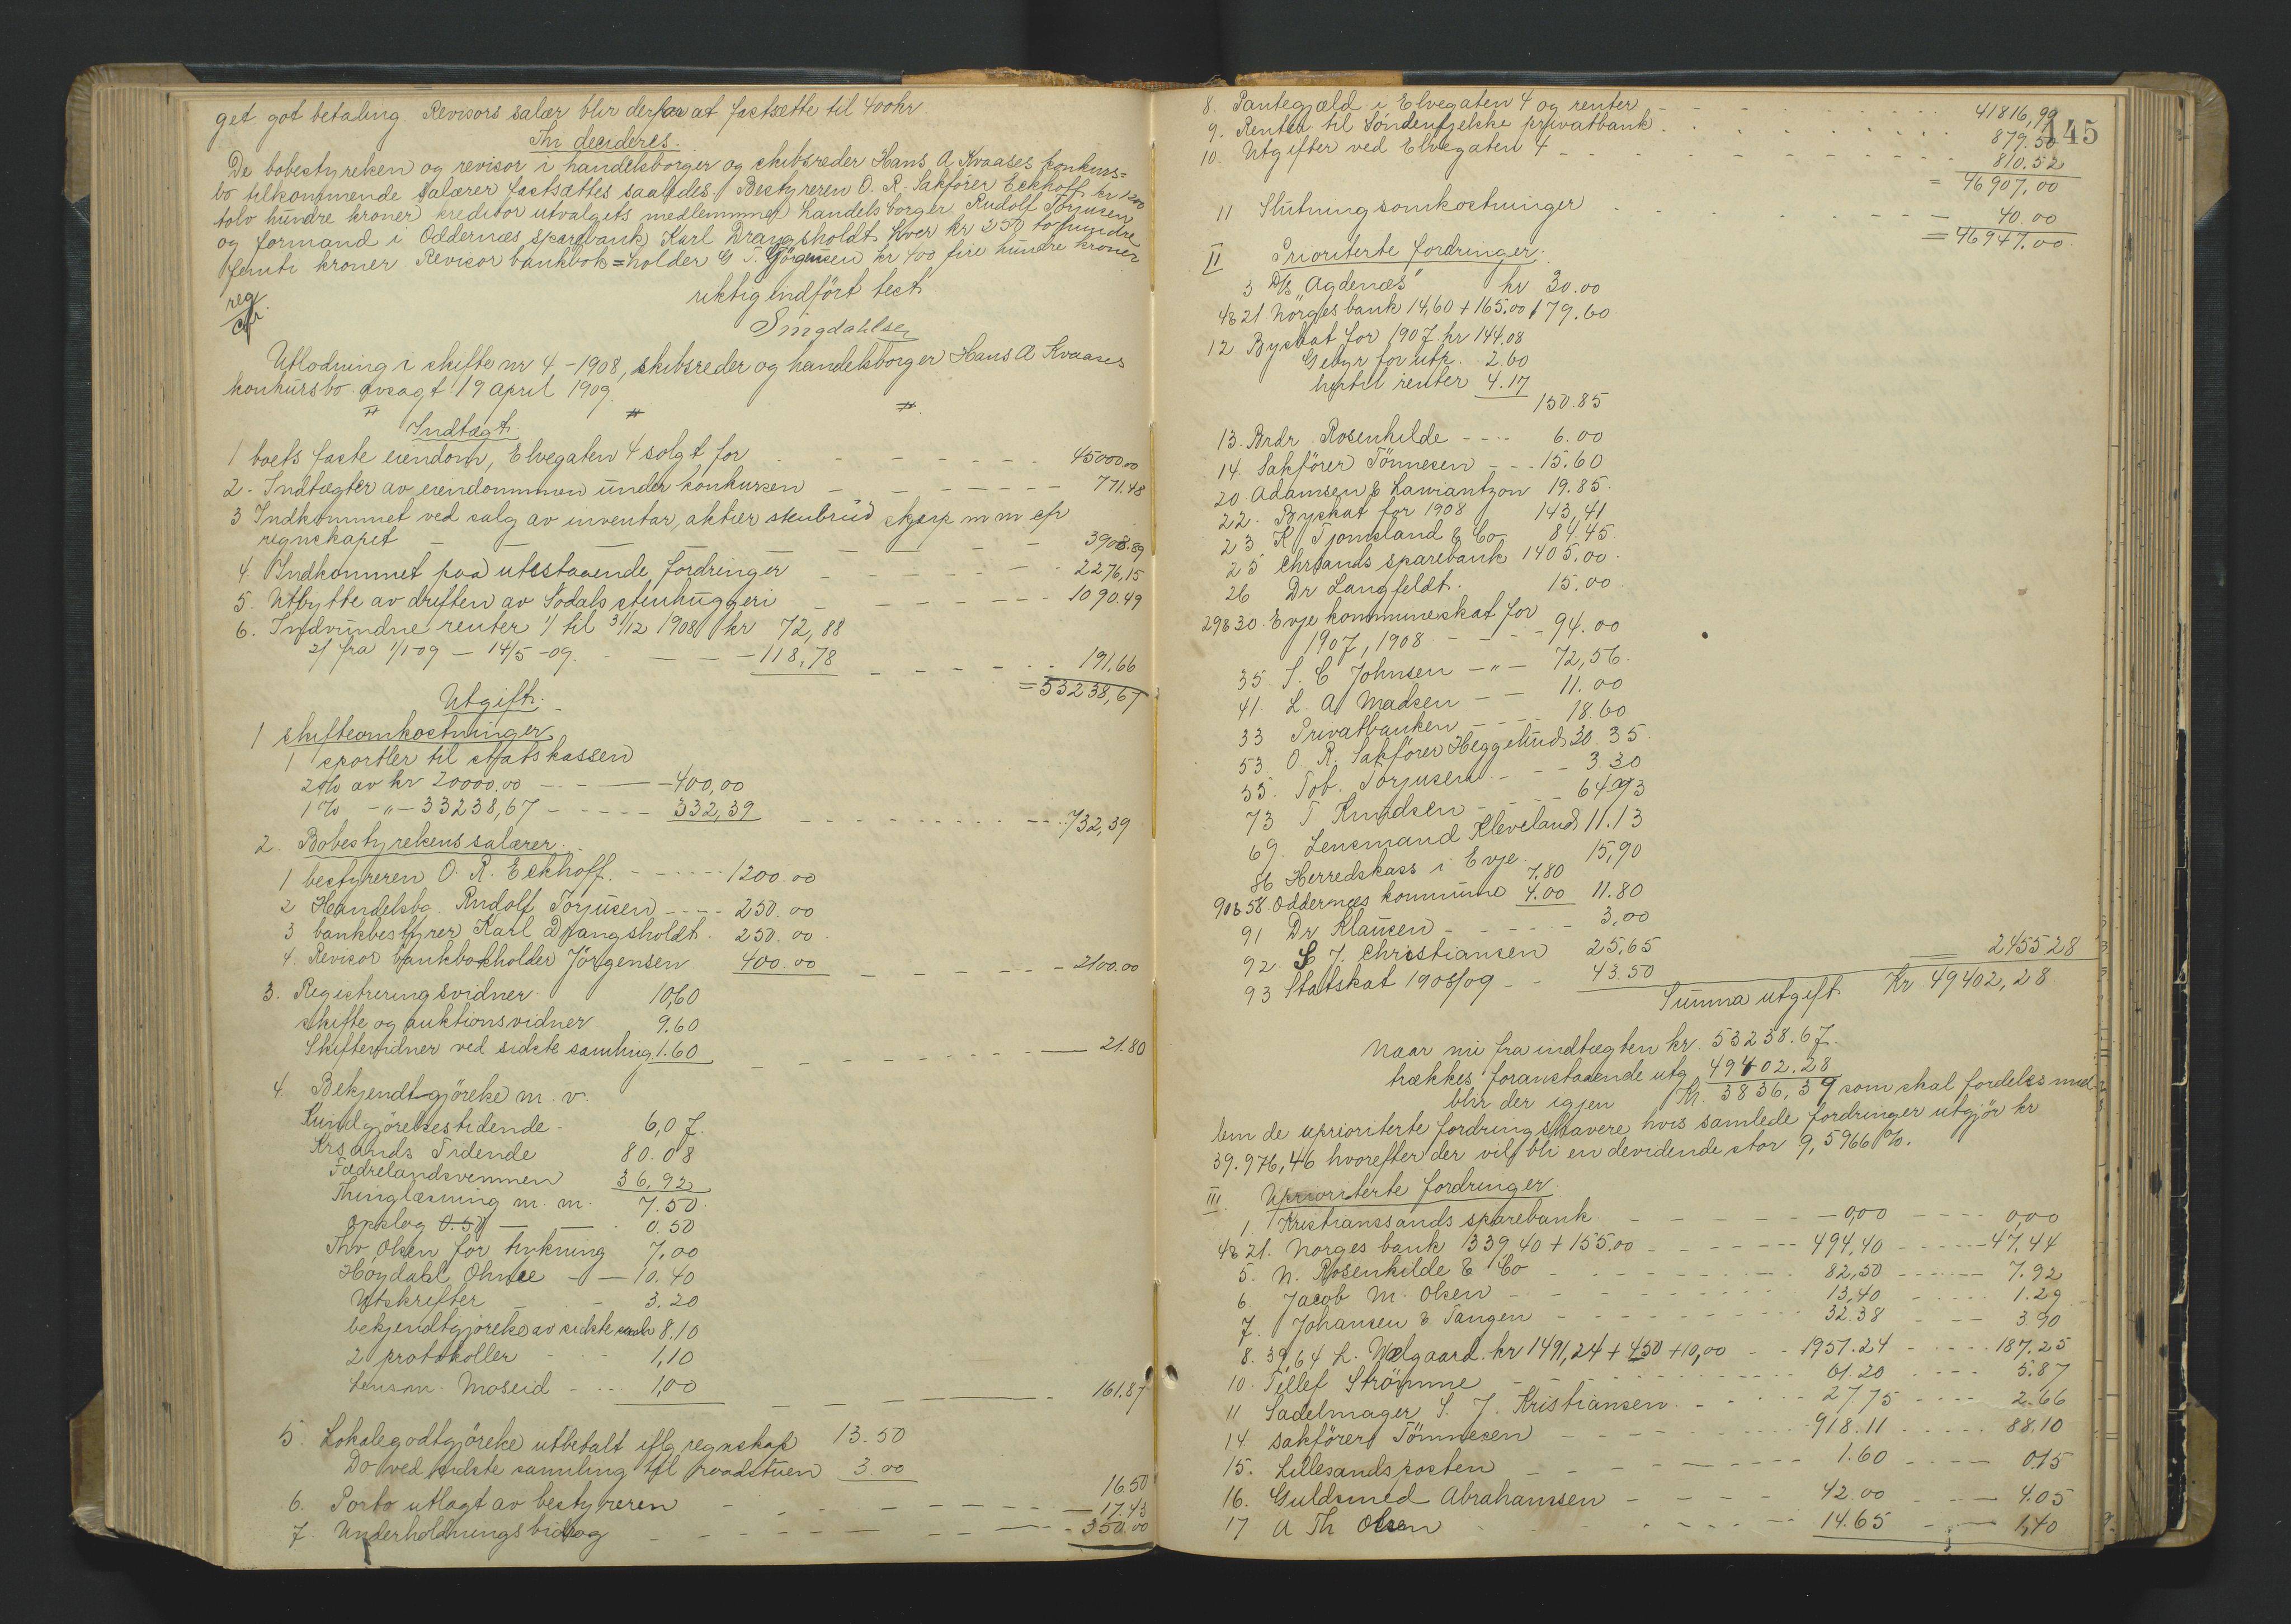 get got betaling. Revisors salær blir derfor at fastsette til 400 kr.
Thi decideres.
De bobestyrelsen og revisor i handelsborger og skibsreder Hans A Kvaases konkurs=
bo tilkommende salærer fastsættes saaledes. Bestyreren O. R. Sakfører Eckhoff kr 1200
tolv hundre kroner) kreditor utvalgets medlemmer handelsborger Rudolf Torjusen
og formand i Oddernæs sparebank Karl Drangsholdt hver kr 250 tohundre
femti kroner Revisor bankbok=holder G T. Jörgensen kr 400 fire hundre kroner
riktig indfört test.
reg
cfr.
Singdahlsen
Utlodning i skifte nr 4 - 1908, skibsreder og handelsborger Hans A Kvaases
konkursbo avsagt 19 april 1909.
Indtægt.
1 boets faste eiendom, Elvegaten 4 solgt for - - - - - 45000.00
2. Indtægter av eiendommen under konkursen - - - - - 771.48
3 Indkommet ved salg av inventar, aktier stenbrud skjerp m m efr
regnskapet - - - - - 3908.89
4 Indkommet paa utestaaende fordringer - - - - - 2276,15
5. Utbytte av driften av Södals stenhuggeri - - - - - 1090.49
6. Indvundne renter 1/ til 31/12 1908 kr 72,88
2/ fra 1/1-09 - 14/5 -09. - - - 118,78 - - - - - 191.66
= 53238,67
Utgift.
1 skifteomkostninger
1 sportler til statskassen
2% av kr 20000.00 - - - 400,00
1% -"- 33238,67 - - - - 332,39 - - - - - 732,39
2. Bobestyrelsens salærer.
1 bestyreren O. R. Eckhoff. - - - - 1200.00
2 Handelsbo. Rudolf Torjusen - - - 250.00
3 bankbestyrer Karl Drangsholdt. 250.00
4. Revisor bankbokholder Jörgensen 400.00 - - - - - 2100.00
3. Registreringsvidner. 10,60
skifte og auktionsvidner 9.60
Skiftevidner ved sidste samling 1.60 - - - - - 21.80
4. Bekjendtgjörelse m. v.
Kundgjörelsestidende - 6,07.
Krsands Tidende 80.08
Fædrelandsvennen 36,92
Thinglæsning m. m. 7.50
opslag 0.50 - - 0.50
Thv Olsen for trykning 7.00
Höydahl Ohme - - 10.40
Utskrifter - - 3.20
bekjendtgjörelse av sidste saml 8.10
2 protokoller - - - 1,10
Lensm. Moseid - - - 1,00 - - - - - 161.87
5. Lokalegodtgjörelse utbetalt iflg regnskap 13.50
Do ved sidste samling til raadstuen 3.00
16.50
6. Porto utlagt av bestyreren - - - - - 17.43
7. Underholdningsbidrag - - - - - 350.00
145
8. Pantegjæld i Elvegaten 4 og renter - - - - - 41816,99
9. Renter til Söndenfjelske privatbank. - - - - - 879.50
10. Utgifter ved Elvegaten 4 - - - - - 810.52
= 46907.00
11 Slutningsomkostninger - - - - - 40.00
= 46947.00
II Prioriterte fordringer.
3 D/S "Agdenæs" kr 30.00
4&21 Norges bank 14,60 + 165.00 179.60
12 Byskat for 1907 kr 144.08
Gebyr for utp. 2.60
hertil renter 4.17
150.85
13. Brdr. Rosenkilde - - - - 6.00
14. Sakförer Tönnesen - - - 15.60
20 Adamsen & Lawrantzon 19.85.
22. Byskat for 1908 143,41
23 K Tjomsland & Co 84.45
25 Chrsands sparebank 1405.00.
26 Dr Langfeldt. 15.00
29&30. Evje kommuneskat for
1907, 1908 - - - - 94.00
35. S. C Johnsen - " - 72,56.
41. L. A Madsen - - 11.00
33 Privatbanken - - - - 18.60
53. O. R. Sakförer Heggelund 30.35.
55. Tob. Torjusen - - - 3.30
73 T Knudsen - - - - 64.93
69. Lensmand Kleveland 11.13
86 Herredskass i Evje 15,90
90&58. Oddernæs kommune 7.80
4.00 11.80
91 Dr Klausen - - - - - 3,00
92. S J. Christiansen 25.65
93 Statskat 1908/09 - - 43.50
2455.28
Summa utgift. Kr 49402,28
Naar nu fra indtægten kr. 53238.67.
trækkes foranstaaende utg. 49402.28
blir der igjen Kr. 3836,39 som skal fordeles mel-
lem de uprioriterte fordringshavere hvis samlede fordringer utgjör kr
39.976,46 hvorefter der vil bli en devidende stor 9,5966 %.
III. Uprioriterte fordringer.
1 Kristianssands sparebank - - - - - 0,00 - - - - 0,00
4&21. Norges bank 339,40 + 155.00 - - - - - 494,40 - - - - 47,44
5. N. Rosenkilde & Co - - - - - 82,50 - - - - 7.92
6. Jacob M. Olsen - - - - - 13,40 - - - - 1.29
7. Johansen & Tangen - - - - - 32.38 - - - 3.90
8. 39,64 L. Wælgaard. kr 1491,24 + 450 + 10,00 - - 1951.24 - - - - 187.25
10. Tellef Strömme - - - - - 61.20 - - - - 5.87
11 Sadelmager S. J. Kristiansen - - - - - 27.75 - - - - 2.66
14. sakförer Tönnesen - - - - - 918.11 - - - - 88.10
15. Lillesandsposten - - - - - 1.60 - - - - 0.15
16. Guldsmed Abrahamsen - - - - - 42.00 - - - - 4.05
17 A Th Olsen - - - - - 14.65 - - - - 1,40